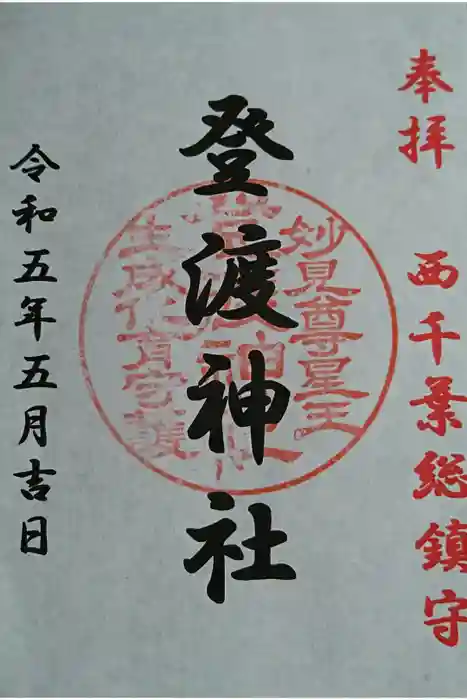 奉拝 西千葉総鎮守
登渡神社
妙見尊星王
令和五年五月吉日